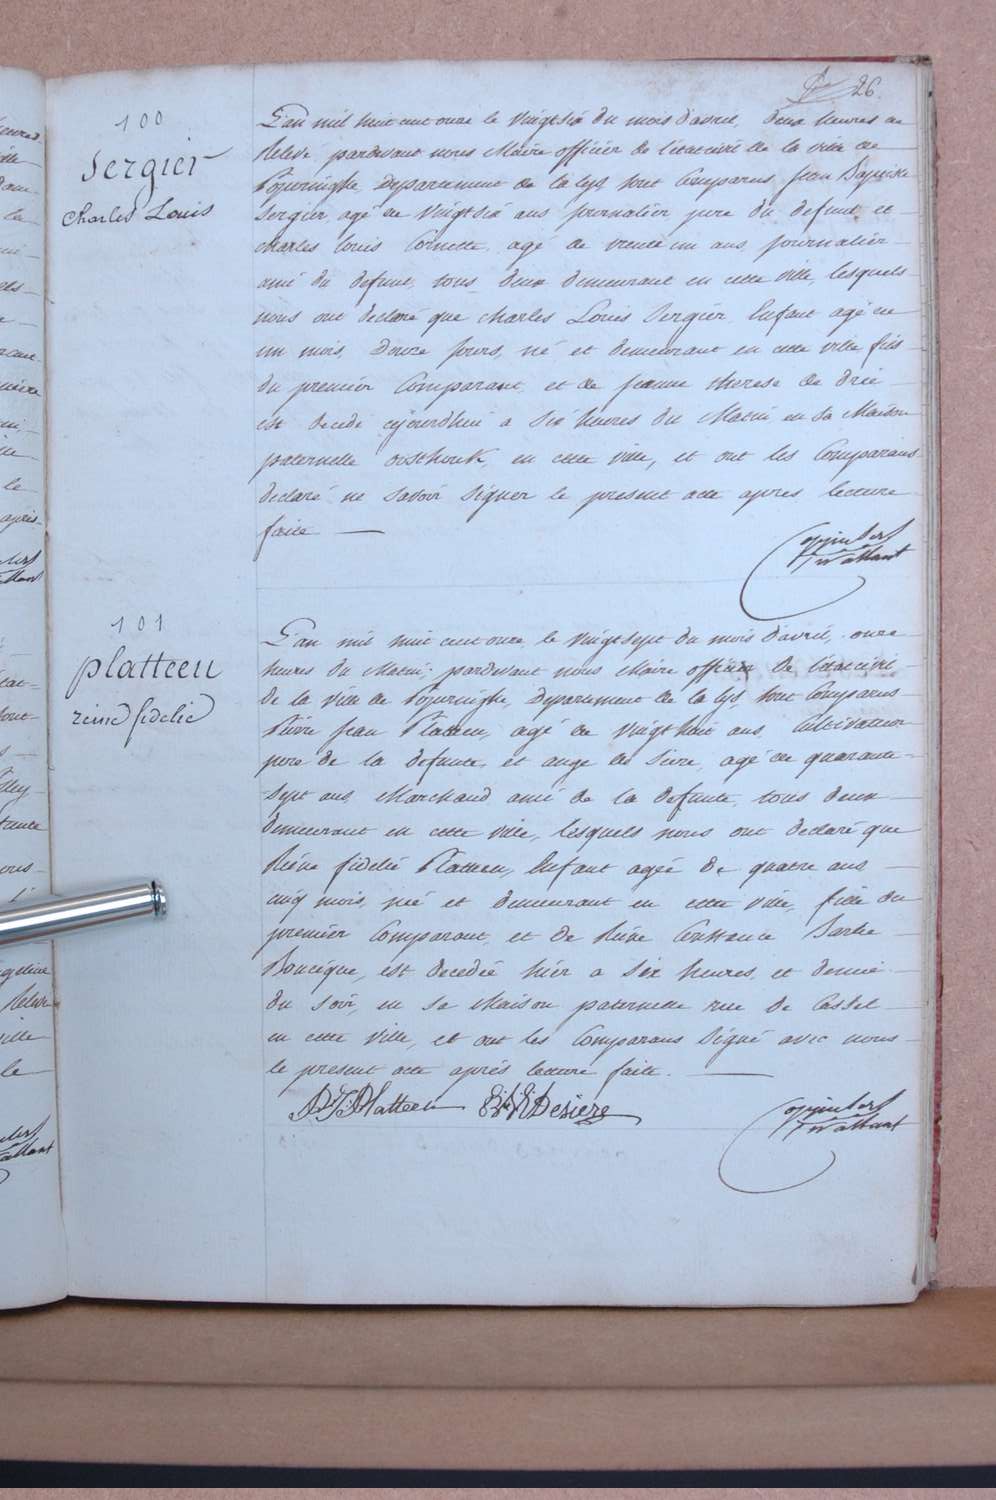 26.
100
Sergier
Charles Louis
L'an mil huit cent onze le vingtsix du mois d'avril, deux heures de
Relevé, pardevant nous Maire officier de l'état civil de la ville de
Poperinghe, Departement de la Lys, sont Comparus, Jean Baptiste
Sergier, agé de vingtsix ans journalier, pere du defunt, et
charles louis Cornette, agé de trente un ans, journalier
ami du defunt, tous deux demeurant en cette ville, lesquels
nous ont declaré que charles Louis Sergier, Enfant agé de
un mois, Douze jours, né et demeurant en cette ville, fils
du premier Comparant, et de jeanne therese de Drie
est decedé cejourdhui a Six heures du Matin en sa Maison
paternelle oosthouk, en cette ville, et ont les Comparans
declaré ne savoir signer le present acte apres lecture
faite.
101
platteeu
reine fidelie
L'an mil huit cent onze, le vingtsept du mois d'avril, onze
heures du Matin, pardevant nous Maire officier de l'état civil
de la ville de Poperinghe, Departement de la Lys, sont Comparus
Pierre Jean Platteeu, agé de vingthuit ans, Cultivateur
pere de la defunte, et ange de Siere, agé de quarante-
sept ans, Marchand, ami de la defunte, tous deux
demeurant en cette ville, lesquels nous ont declaré que
Reine fidelie Platteeu, Enfant agée de quatre ans
cinq mois, née et demeurant en cette ville, fille du
premier Comparant, et de Reine Constance Barbe
Boucique, est decedée hier a Six heures et demie
du soir, en sa Maison paternelle rue de Cassel
en cette ville, et ont les Comparans Signé avec nous
le present acte aprés lecture faite.
P. J. Platteeu Desiere